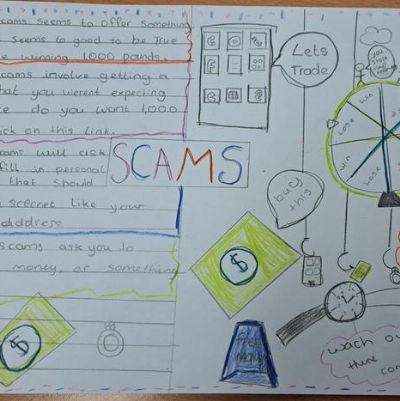 cams seems to offer something
seems to good to be True
wining 1,000 pounds.
cams involve getting a
hat you werent expecting
do you want 1,000
ick on this link.
cams will ask
fill in personal
that should
a secret like your
address
scams ask you to
money, or something
SCAMS
Lets
Trade
buy
this
$
$
win
lose
lose
win
lose
wach ou
there
com